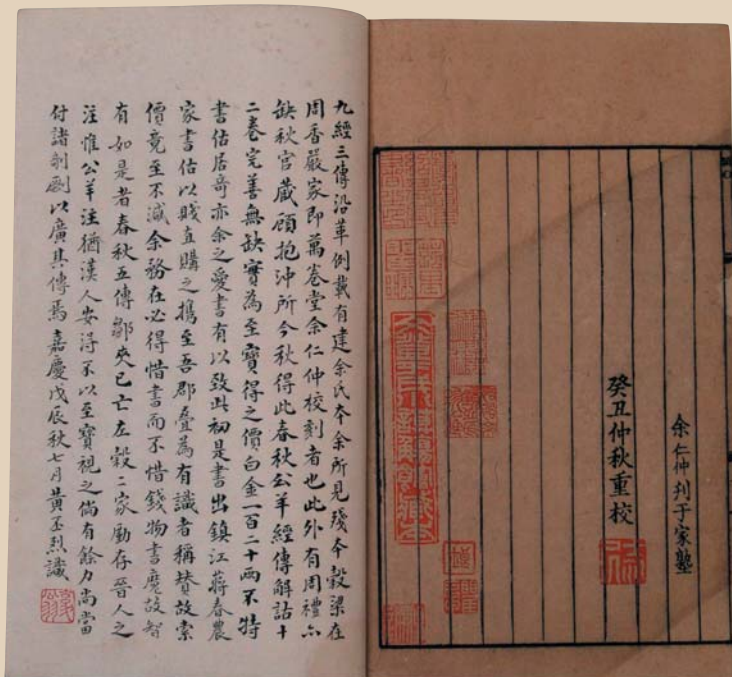 余仁仲刊于家塾
癸丑仲秋重校
九經三傳沿革例載有建余氏本余所見殘本穀梁在
周香嚴家即萬卷堂余仁仲校刻者也此外有周禮亦
缺秋官藏顧抱沖所今秋得此春秋公羊經傳解詁十
二卷完善無缺實為至寶得之價白金一百二十兩不特
書估居奇亦余之愛書有以致此初是書出鎮江蔣春農
家書估以賤直購之攜至吾郡疊為有識者稱賛故索
價竟至不減余務在必得惜書而不惜錢物書魔故智
有如是者春秋五傳鄒夾已亡左穀二家勵存晉人之
注惟公羊注猶漢人安得不以至寶視之倘有餘力尚當
付諸剞劂以廣其傳焉嘉慶戊辰秋七月黃丕烈識